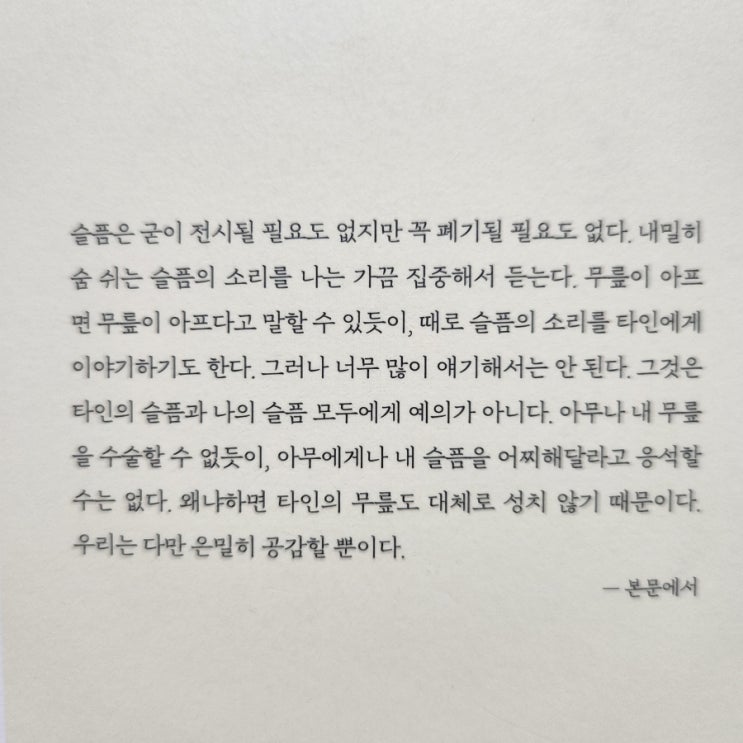 슬픔은 굳이 전시될 필요도 없지만 꼭 폐기될 필요도 없다. 내밀히
숨 쉬는 슬픔의 소리를 나는 가끔 집중해서 듣는다. 무릎이 아프
면 무릎이 아프다고 말할 수 있듯이, 때로 슬픔의 소리를 타인에게
이야기하기도 한다. 그러나 너무 많이 얘기해서는 안 된다. 그것은
타인의 슬픔과 나의 슬픔 모두에게 예의가 아니다. 아무나 내 무릎
을 수술할 수 없듯이, 아무에게나 내 슬픔을 어찌해달라고 응석할
수는 없다. 왜냐하면 타인의 무릎도 대체로 성치 않기 때문이다.
우리는 다만 은밀히 공감할 뿐이다.
— 본문에서